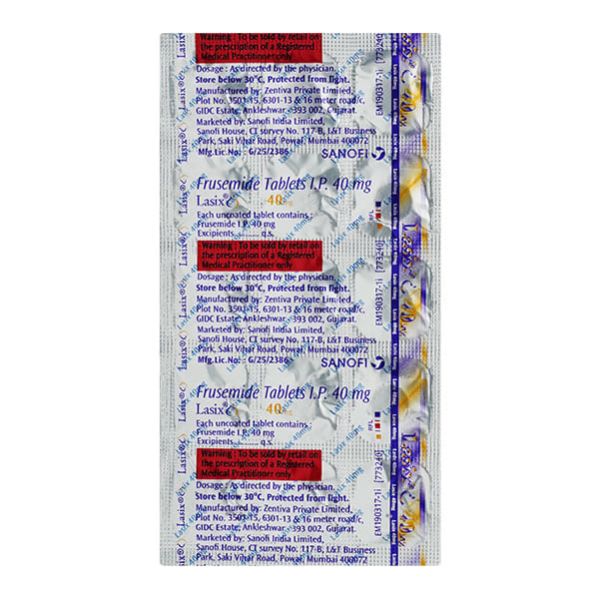 Warning : To be sold by retail on
the prescription of a Registered
Medical Practitioner only
Dosage : As directed by the physician.
Store below 30°C, Protected from light.
Manufactured by: Zentiva Private Limited,
Plot No. 3503-15, 6301-13 & 16 meter road/c,
GIDC Estate, Ankleshwar-393 002, Gujarat.
Marketed by: Sanofi India Limited,
Sanofi House, CT survey No. 117-B, L&T Business
Park, Saki Vihar Road, Powai, Mumbai 400072
Mfg.Lic.No.: G/25/2386
SANOFI
Frusemide Tablets I.P. 40 mg
Lasix®
40mg
Each uncoated tablet contains :
Frusemide I.P. 40 mg
Excipients......... q.s.
Warning : To be sold by retail on
the prescription of a Registered
Medical Practitioner only
Dosage : As directed by the physician.
Store below 30°C, Protected from light.
Manufactured by: Zentiva Private Limited,
Plot No. 3503-15, 6301-13 & 16 meter road/c,
GIDC Estate, Ankleshwar-393 002, Gujarat.
Marketed by: Sanofi India Limited,
Sanofi House, CT survey No. 117-B, L&T Business
Park, Saki Vihar Road, Powai, Mumbai 400072
Mfg.Lic.No. : G/25/2386
SANOFI
Frusemide Tablets I.P. 40 mg
Lasix®
40mg
Each uncoated tablet contains :
Frusemide I.P. 40 mg
Excipients......... q.s.
Warning : To be sold by retail on
the prescription of a Registered
Medical Practitioner only
Dosage : As directed by the physician.
Store below 30°C, Protected from light.
Manufactured by: Zentiva Private Limited,
Plot No. 3503-15, 6301-13 & 16 meter road/c,
GIDC Estate, Ankleshwar-393 002, Gujarat.
Marketed by: Sanofi India Limited,
Sanofi House, CT survey No. 117-B, L&T Business
Park, Saki Vihar Road, Powai, Mumbai 400072
EM190317-1i [773240]
EM190317-1i [773240]
EM190317-1i [773240]
Lasix 40mg